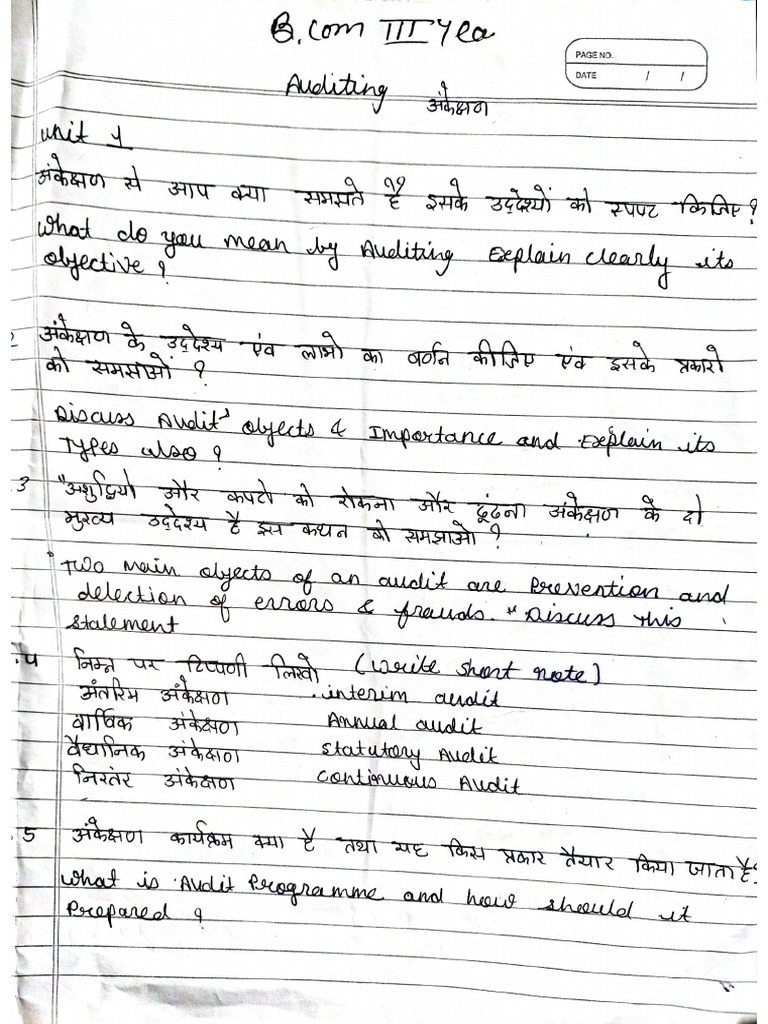 B.Com III Yea
PAGE NO.
DATE / /
Auditing अंकेक्षण
Unit 1
अंकेक्षण से आप क्या समझते है इसके उद्देश्यों को स्पष्ट किजिए?
What do you mean by Auditing Explain clearly its
objective?
2 अंकेक्षण के उद्देश्य एंव लाभो का वर्णन कीजिए एंव इसके प्रकारो
को समझाओं ?
Discuss Audit's objects & Importance and Explain its
Types also?
.3 "अशुद्वियो और कपटो को रोकना और ढूंढना अंकेक्षण के दो
मुख्य उद्देश्य है इस कथन को समझाओ ?
"Two main objects of an audit are Prevention and
detection of errors & frauds." Discuss this
statement
.4 निम्न पर टिप्पणी लिखो (write short note)
अंतरिम अंकेक्षण interim audit
वार्षिक अंकेक्षण Annual audit
वैद्यानिक अंकेक्षण Statutory Audit
निरतंर अंकेक्षण Continuous Audit
.5 अंकेक्षण कार्यक्रम क्या है तथा यह किस प्रकार तैयार किया जाता है?
What is Audit Programme and how should it
Prepared ?